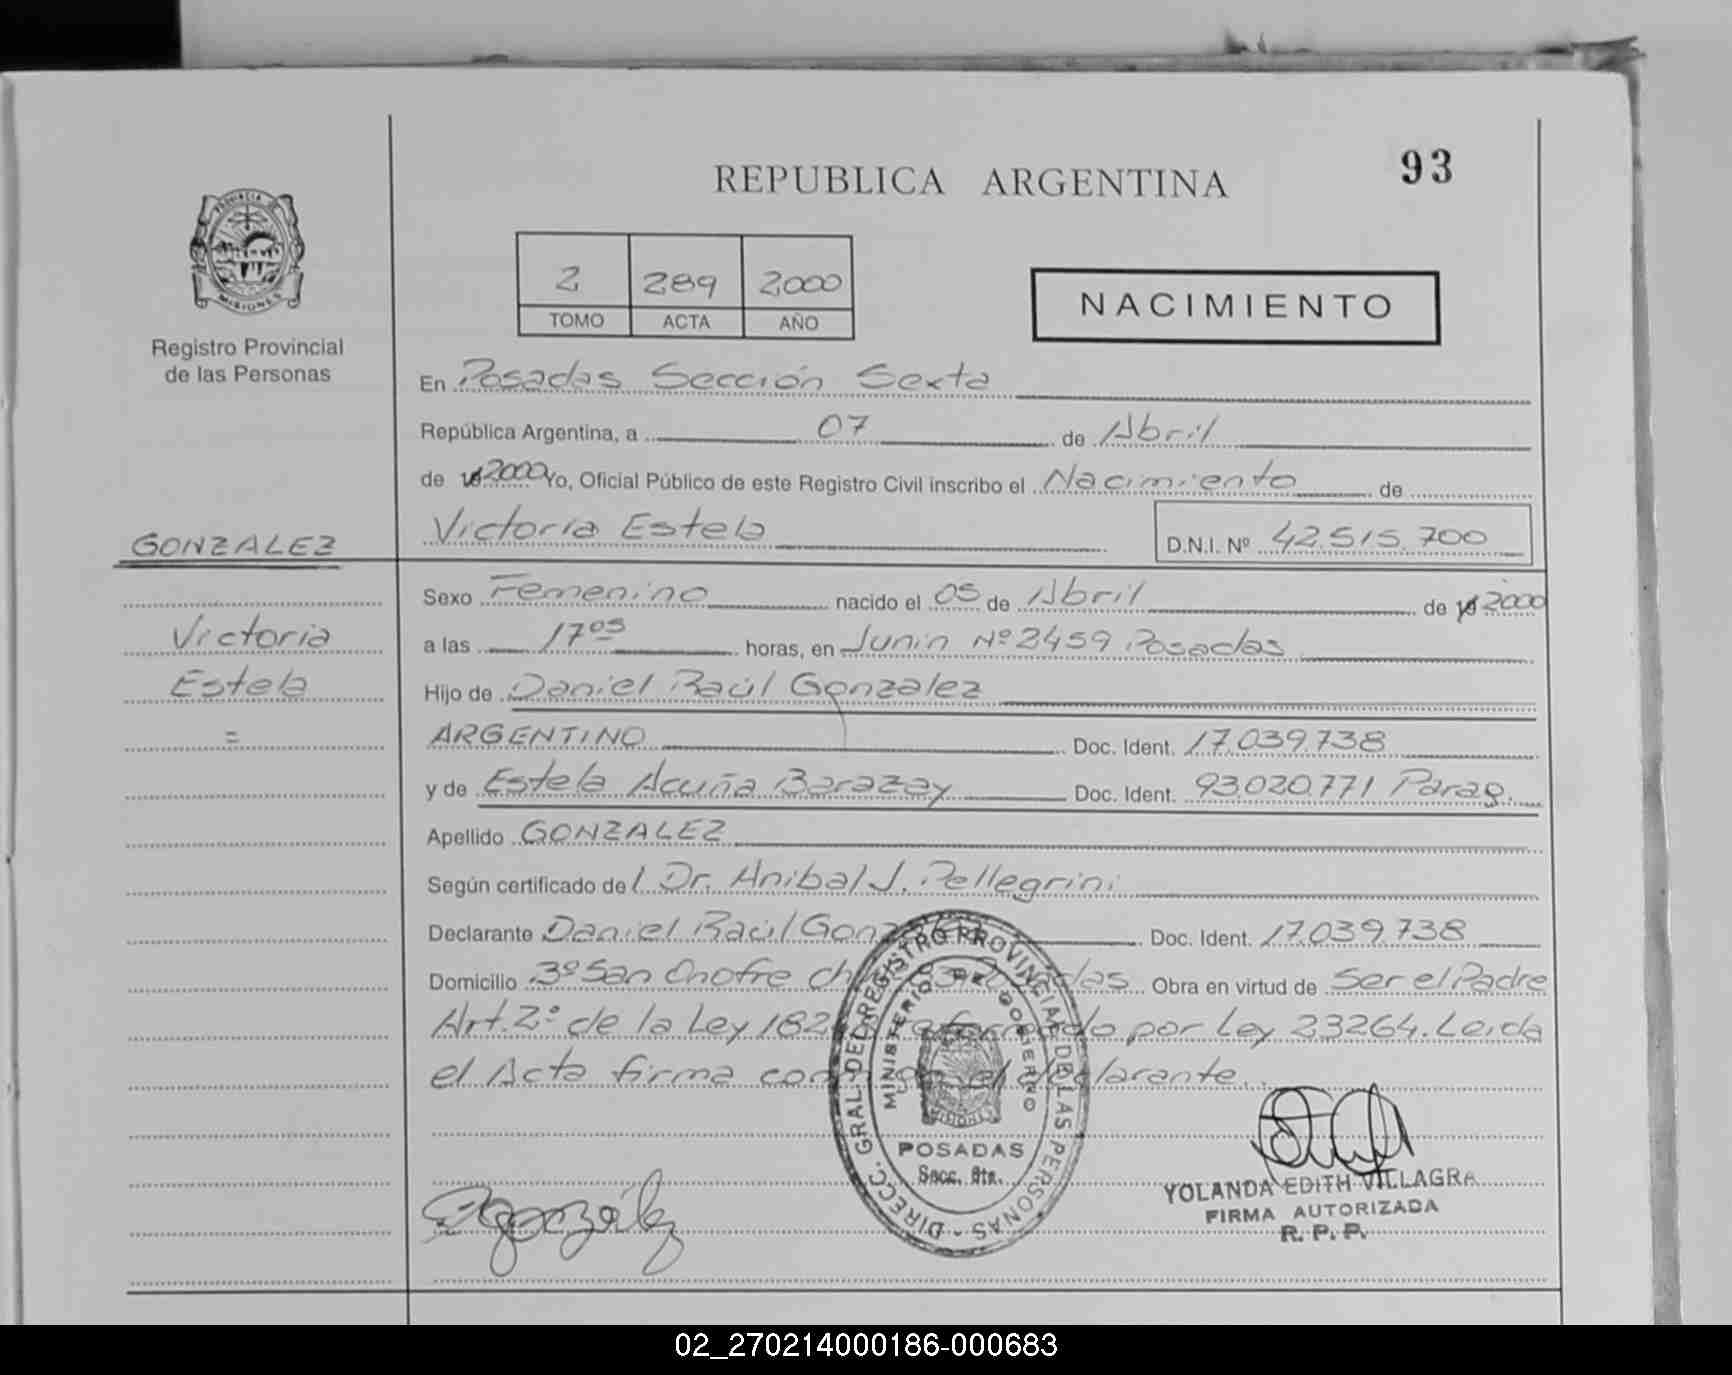 93
REPUBLICA ARGENTINA
PROVINCIA DE
MISIONES
Registro Provincial
de las Personas
2 289 2000
TOMO ACTA AÑO
NACIMIENTO
En Posadas Sección Sexta
República Argentina, a 07 de Abril
de 2000 Yo, Oficial Público de este Registro Civil inscribo el Nacimiento de
Victoria Estela D.N.I. Nº 42.515.700
GONZALEZ
Victoria
Estela
=
Sexo Femenino nacido el 05 de Abril de 2000
a las 17 05 horas, en Junin Nº 2459 Posadas
Hijo de Daniel Raúl Gonzalez
ARGENTINO Doc. Ident. 17.039.738
y de Estela Acuña Barazay Doc. Ident. 93.020.771 Parag.
Apellido GONZALEZ
Según certificado del Dr. Anibal J. Pellegrini
Declarante Daniel Raúl Gonzalez Doc. Ident. 17.039.738
Domicilio 3º San Onofre Obra en virtud de Ser el Padre
Art. 2º de la Ley por Ley 23264. Leida
el Acta firma el declarante.
DIRECC. GRAL. DEL REGISTRO PROVINCIAL DE LAS PERSONAS
MINISTERIO DE GOBIERNO
MISIONES
POSADAS
Secc. 6ta.
YOLANDA EDITH VILLAGRA
FIRMA AUTORIZADA
R. P. P.
02_270214000186-000683